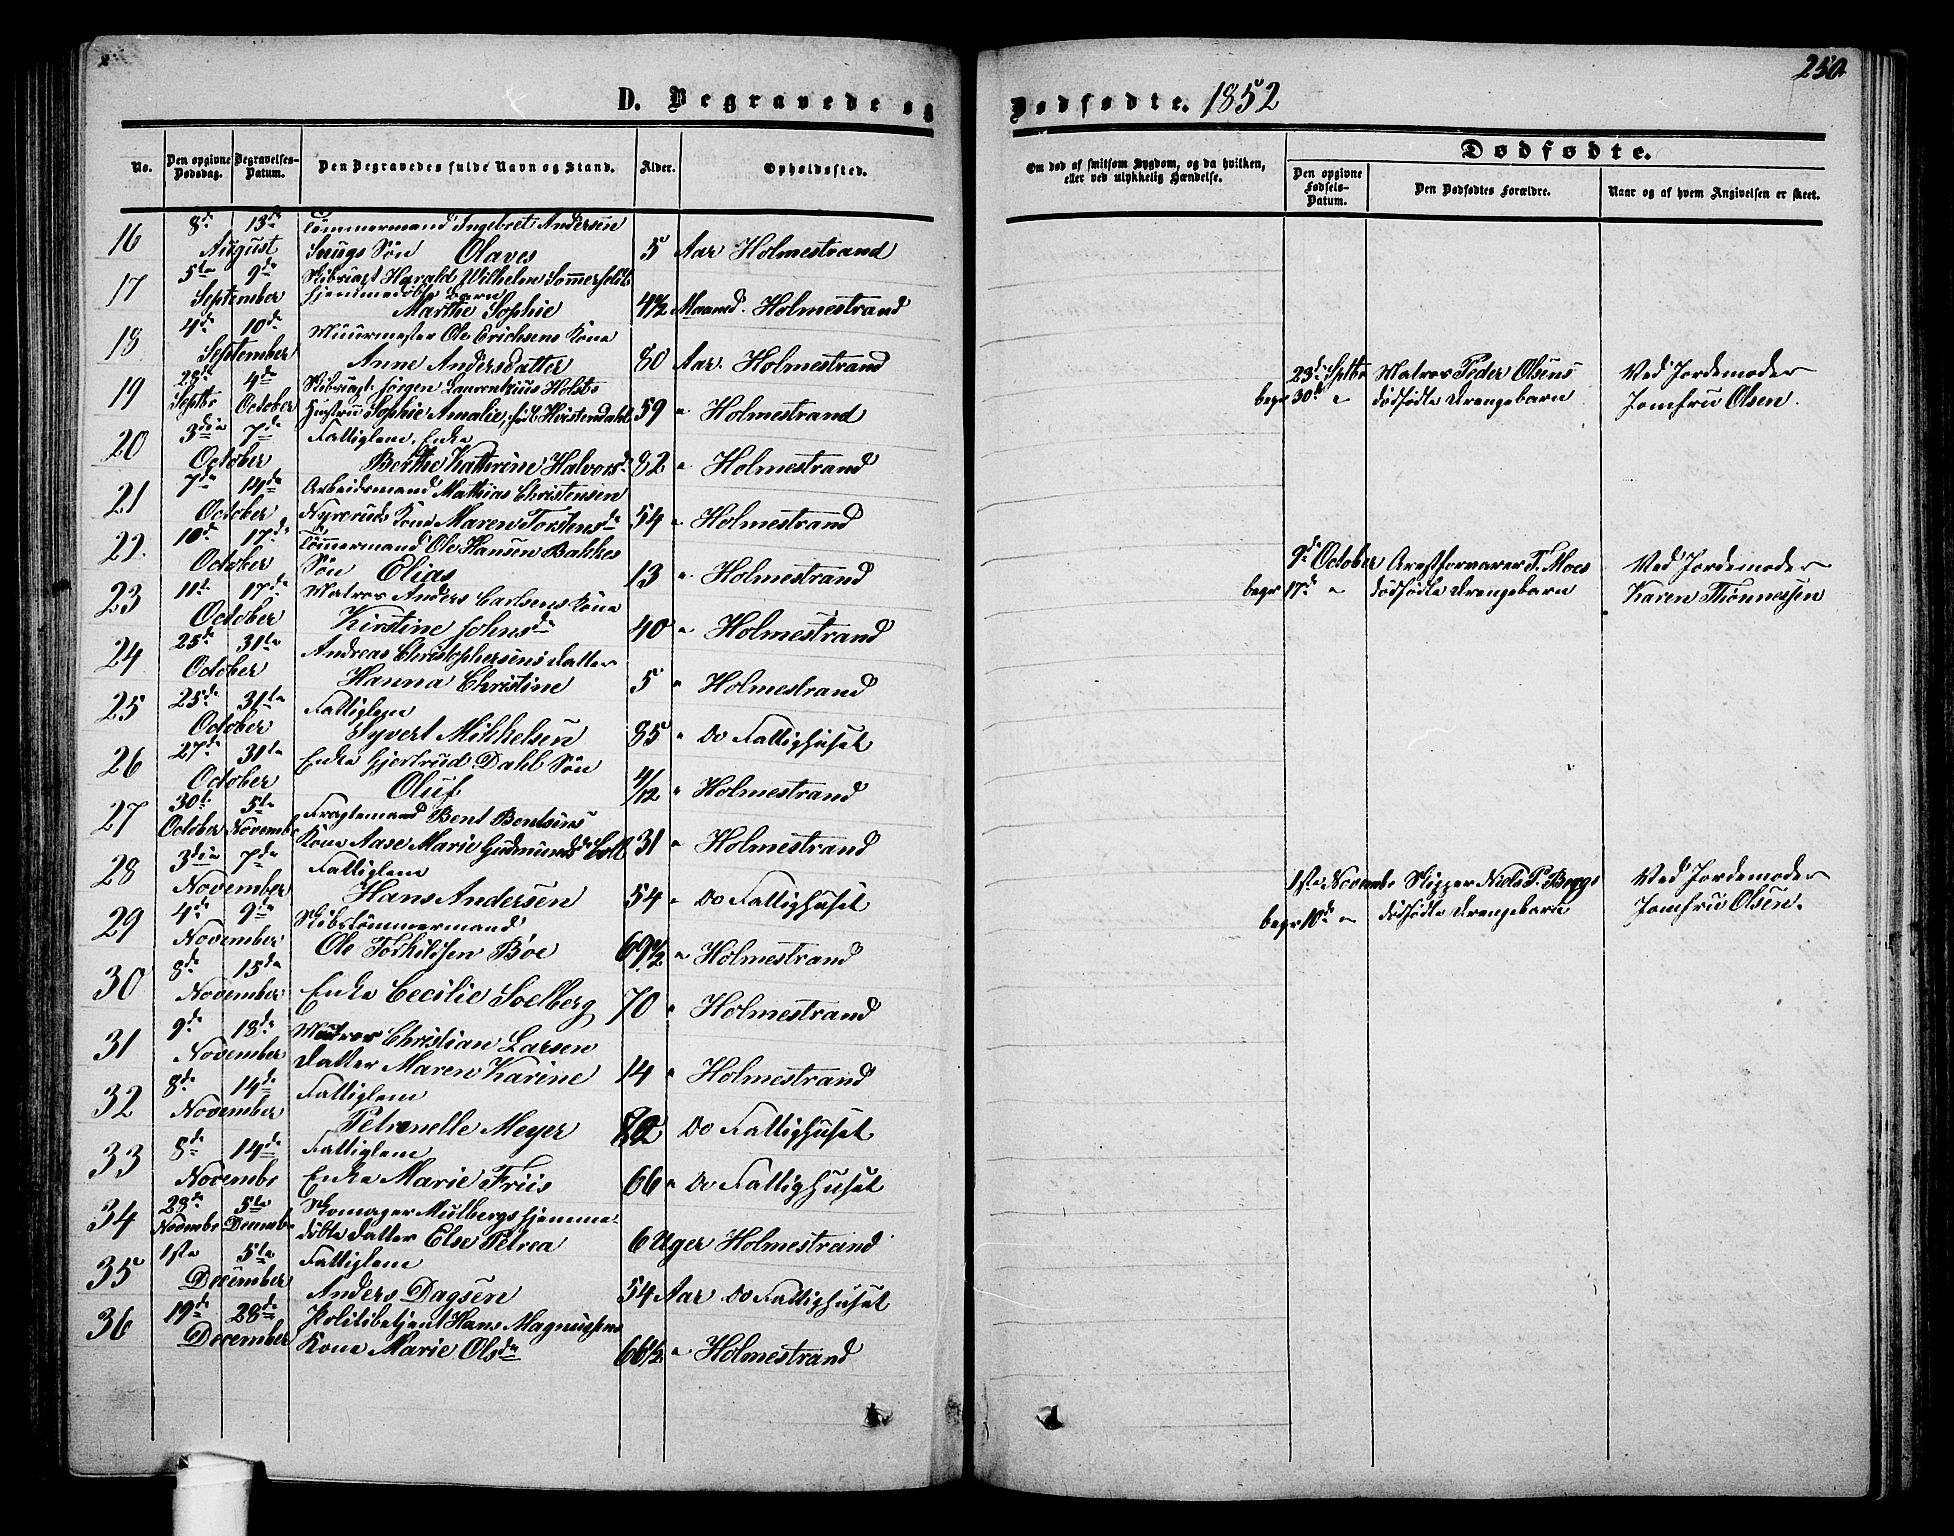 250
D. Begravede og Dødfødte. 1852
No. Den opgivne Dødsdag. Begravelses-Datum. Den Begravedes fulde Navn og Stand. Alder. Opholdssted.
Om død af smitsom Sygdom, og da hvilken, eller ved ulykkelig Hændelse.
Dødfødte.
Den opgivne Fødsels-Datum. Den Dødfødtes Forældre. Naar og af hvem Angivelsen er skeet.
8de 13de Tømmermand Ingebret Andersen
16 August Snugs Søn Olaves 5 Aar Holmestrand
5te 9de Skibsrigt Harald Wilhelm Sommerfeldts
17 September hjemmedøbte Barn
Marthe Sophie 4½ Maaned. Holmestrand
4de 10de Muurmester Ole Erichsens Kone
18 September Anne Andersdatter 80 Aar. Holmestrand
28de 4de Skibsrigt. Jørgen Laurentzius Holsts
19 Septbr October Hustru Sophie Amalie, født Hirstendahl 59 " Holmestrand
3die 7de Fattiglem, Enke
20 October Berthe Kathrine Halvorsd. 82 " Holmestrand
7de 14de Arbeidsmand Mathias Christensen
21 October Nyrruds Kone Maren Torstensda 54 " Holmestrand
10de 17de Tømmermand Ole Hansen Bakkes
22. October Søn Elias 13 " Holmestrand
11te 17de Matros Anders Carlsens Kone
23 October Kirstine Johnsda 40 " Holmestrand
25de 31te Andreas Christophersens Datter
24 October Hanna Christine 5 " Holmestrand
25de 31te Fattiglem
25 October Syvert Mikkelsen 85 " Do Fattighuset
27de 31te Enke Gjertrud Dahl Søn
26 October Oluf 4/12 " Holmestrand
30te 5te Fragtemand Bent Bentsens
27 October Novembr Kone Aase Marie Gudmundsd. 31 " Holmestrand
3die 7de Fattiglem
28 November Hans Andersen 54 " Do Fattighuset
4de 9de Skibstømmermand
29 November Ole Torkildsen Bøe 69½ " Holmestrand
8de 15de
30 November Enke Cecilie Soelberg 70 " Holmestrand
9de 18de Matros Christian Larsen
31 November Datter Maren Karine 14 " Holmestrand
8de 14de Fattiglem
32 November Petronelle Meyer 82 Do Fattighuset
8de 14de Fattiglem
33 Novembr Enke Marie Friis 66 " Do Fattighuset
29de 5te Skomager Mulbergs hjemme-
34 Novembr Decembr døbte Datter Else Petrea 6 Uger Holmestrand
1ste 5te Fattiglem
35 December Anders Dagsen 54 Aar Do Fattighuset
19de 28de Politibetjent Hans Magnussens
36 December Kone Marie Olsda 66½ " Holmestrand
23de Sptbr Matros Peder Olsens Ved Jordemoder
begr 30de " dødfødte Drengebarn Jomfru Olsen.
9de October Arestforvarer T. Moes Ved Jordemoder
begr 17de " dødfødte Drengebarn Karen Thönnessen
1ste Novembr Skipper Niels P. Boggs Ved Jordemoder
begr 10de " dødfødte Drengebarn Jomfru Olsen.